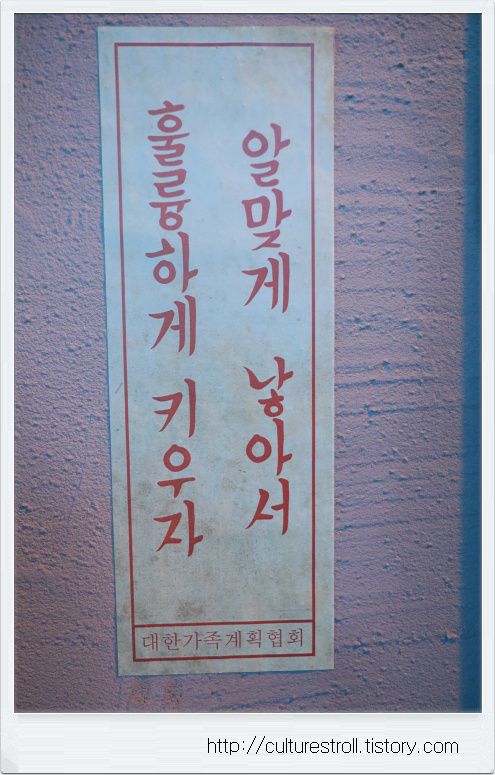 알맞게 낳아서
훌륭하게 키우자
대한가족계획협회
http://culturestroll.tistory.com